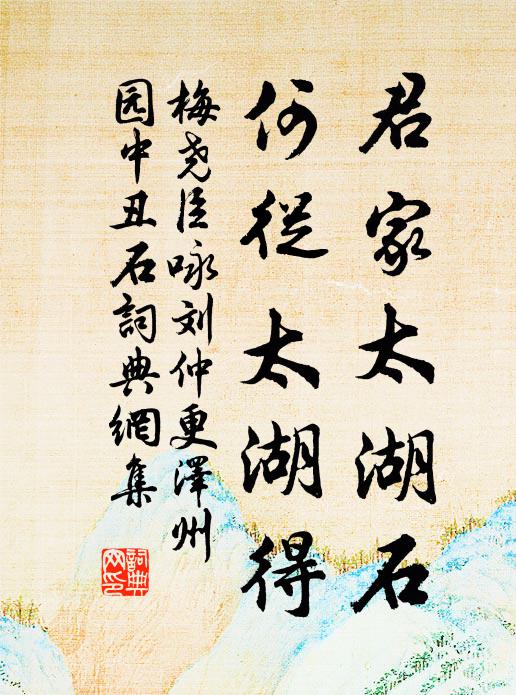 君家太湖石
何從太湖得
梅尧臣咏刘仲更澤州
园中丑石詞典網集
詞典